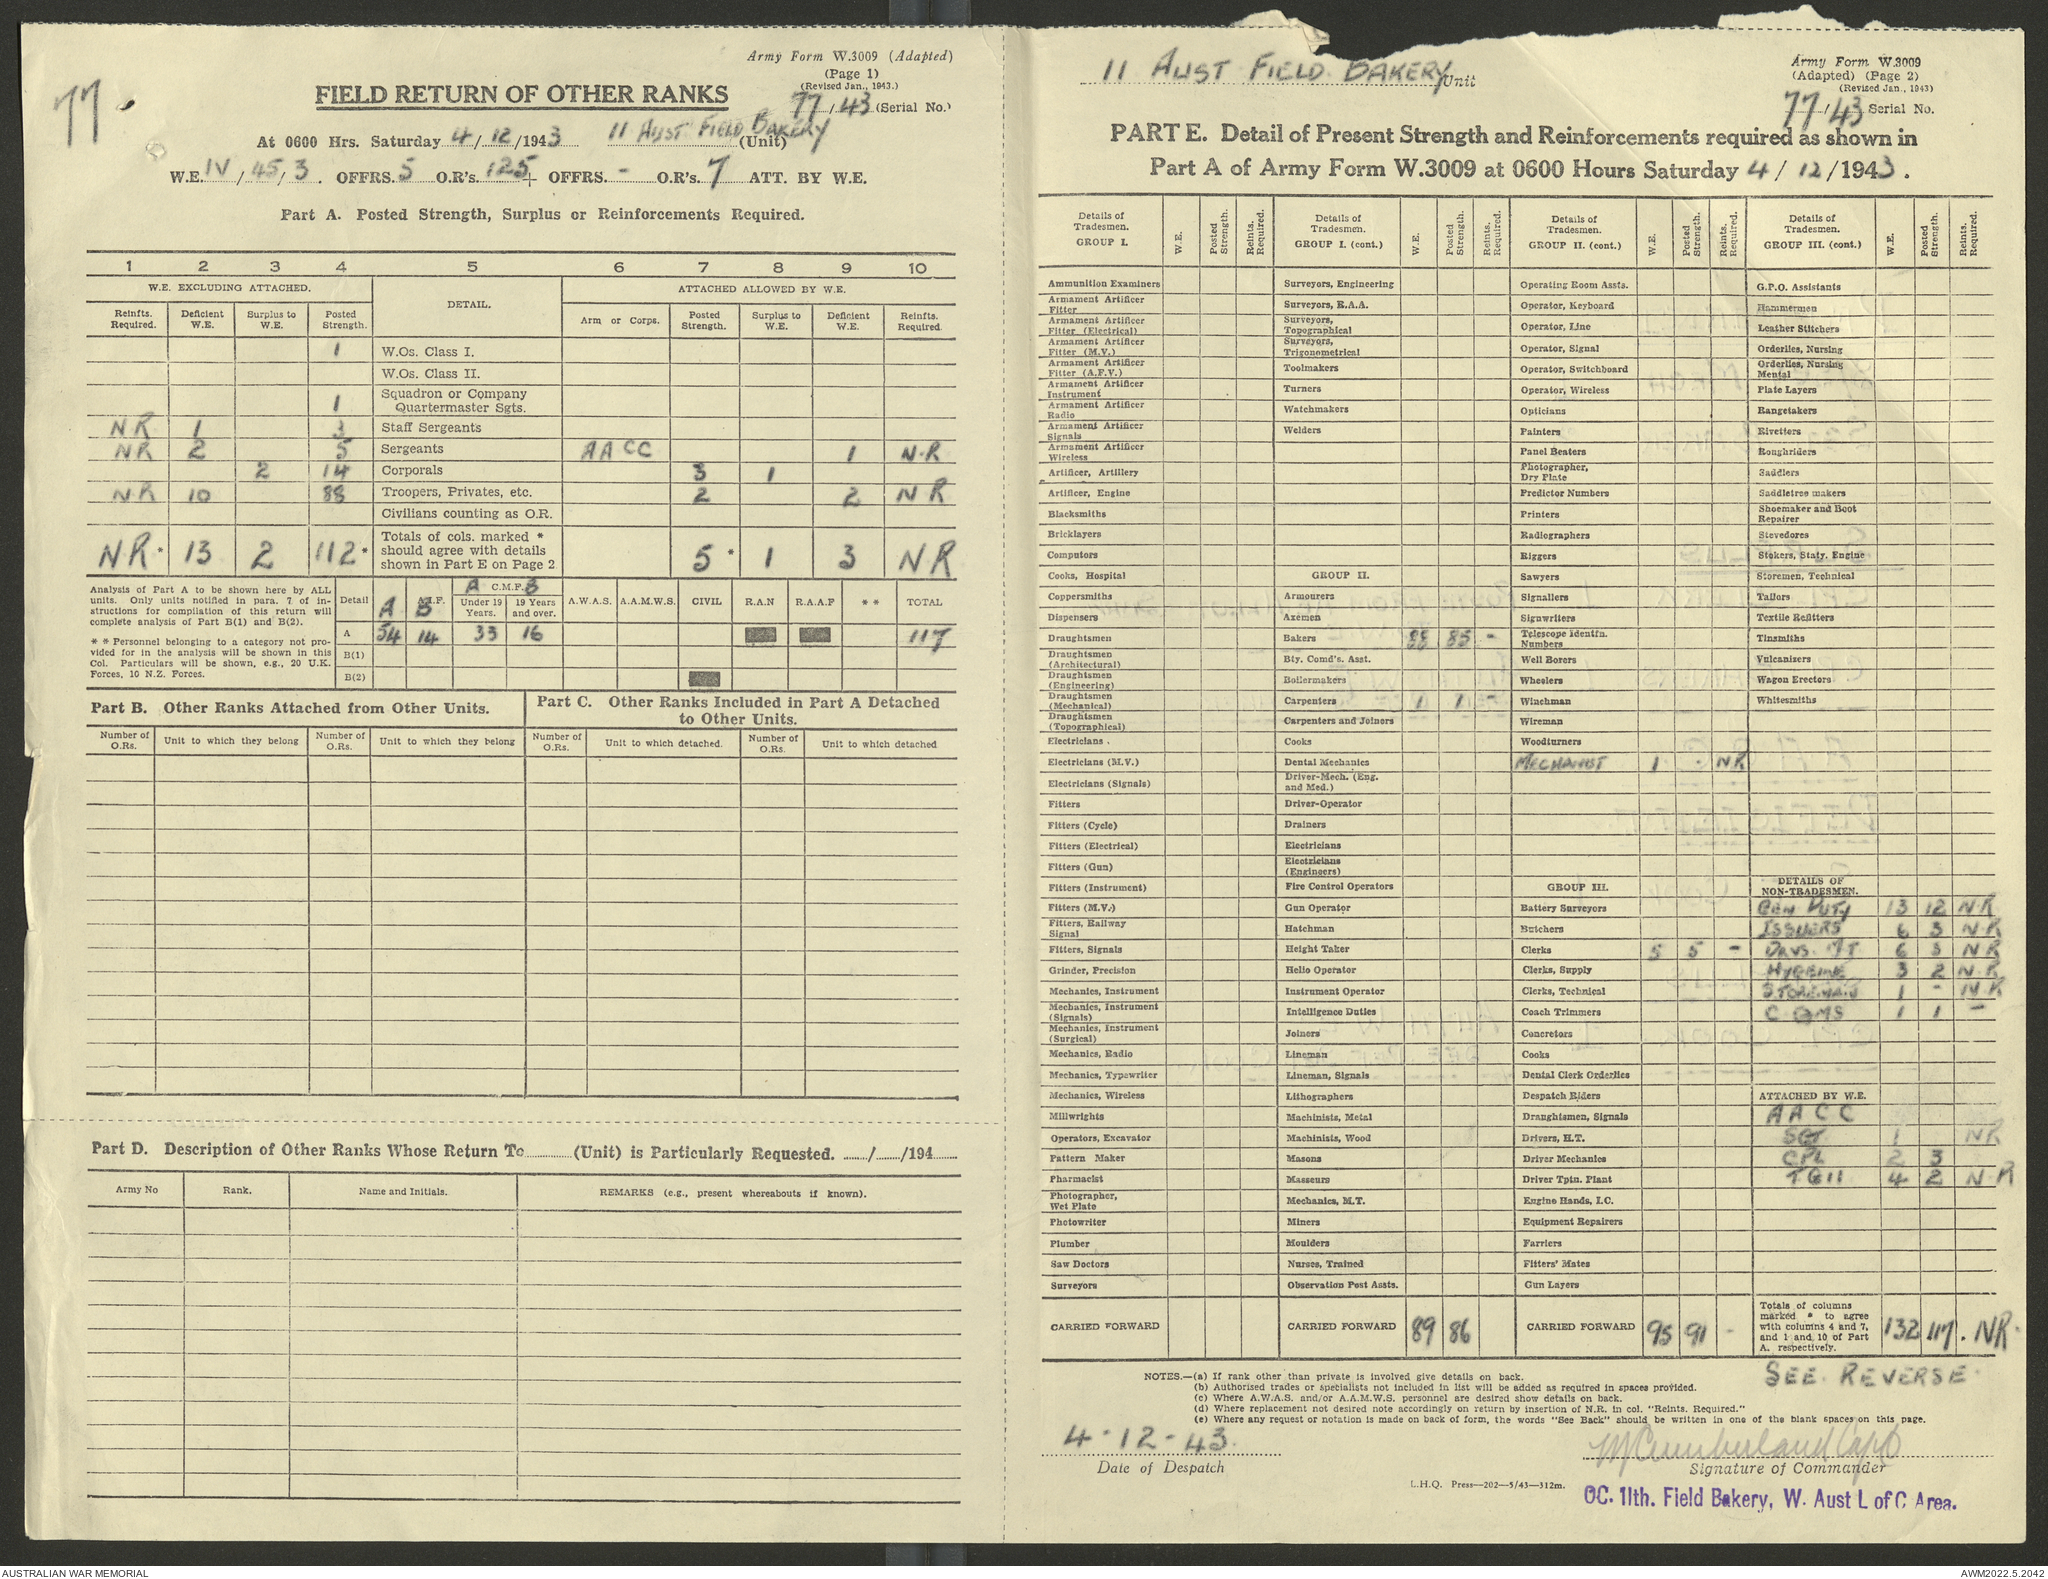 77
Army Form W.3009 (Adapted)
(Page 1)
(Revised Jan., 1943.)
FIELD RETURN OF OTHER RANKS
77/43 (Serial No.)
At 0600 Hrs. Saturday 4/12/1943 11 AUST FIELD BAKERY (Unit)
W.E. IV/45/3. OFFRS. 5 O.R's. 125 + OFFRS. - O.R's. 7 ATT. BY W.E.
Part A. Posted Strength, Surplus or Reinforcements Required.
1 2 3 4 5 6 7 8 9 10
W.E. EXCLUDING ATTACHED. DETAIL. ATTACHED ALLOWED BY W.E.
Reinfts. Required. Deficient W.E. Surplus to W.E. Posted Strength. Arm or Corps. Posted Strength. Surplus to W.E. Deficient W.E. Reinfts. Required.
1 W.Os. Class I.
W.Os. Class II.
1 Squadron or Company Quartermaster Sgts.
NR 1 3 Staff Sergeants
NR 2 5 Sergeants AACC 1 N.R
2 14 Corporals 3 1
N.R 10 88 Troopers, Privates, etc. 2 2 NR
Civilians counting as O.R.
NR * 13 2 112 * Totals of cols. marked * should agree with details shown in Part E on Page 2 5 * 1 3 NR
Analysis of Part A to be shown here by ALL units. Only units notified in para. 7 of instructions for compilation of this return will complete analysis of Part B(1) and B(2).
* * Personnel belonging to a category not provided for in the analysis will be shown in this Col. Particulars will be shown, e.g., 20 U.K. Forces, 10 N.Z. Forces.
Detail A A.I.F. B A C.M.F. B Under 19 Years. 19 Years and over. A.W.A.S. A.A.M.W.S. CIVIL R.A.N R.A.A.F * * TOTAL
A 54 14 33 16 117
B(1)
B(2)
Part B. Other Ranks Attached from Other Units.
Part C. Other Ranks Included in Part A Detached to Other Units.
Number of O.Rs. Unit to which they belong Number of O.Rs. Unit to which they belong Number of O.Rs. Unit to which detached. Number of O.Rs. Unit to which detached
Part D. Description of Other Ranks Whose Return To (Unit) is Particularly Requested. / /194
Army No Rank. Name and Initials. REMARKS (e.g., present whereabouts if known).
11 AUST FIELD BAKERY Unit
Army Form W.3009
(Adapted) (Page 2)
(Revised Jan., 1943)
77/43 Serial No.
PART E. Detail of Present Strength and Reinforcements required as shown in
Part A of Army Form W.3009 at 0600 Hours Saturday 4/12/1943.
Details of Tradesmen. GROUP I. W.E. Posted Strength. Reints. Required.
Ammunition Examiners
Armament Artificer Fitter
Armament Artificer Fitter (Electrical)
Armament Artificer Fitter (M.V.)
Armament Artificer Fitter (A.F.V.)
Armament Artificer Instrument
Armament Artificer Radio
Armament Artificer Signals
Armament Artificer Wireless
Artificer, Artillery
Artificer, Engine
Blacksmiths
Bricklayers
Computors
Cooks, Hospital
Coppersmiths
Dispensers
Draughtsmen
Draughtsmen (Architectural)
Draughtsmen (Engineering)
Draughtsmen (Mechanical)
Draughtsmen (Topographical)
Electricians .
Electricians (M.V.)
Electricians (Signals)
Fitters
Fitters (Cycle)
Fitters (Electrical)
Fitters (Gun)
Fitters (Instrument)
Fitters (M.V.)
Fitters, Railway Signal
Fitters, Signals
Grinder, Precision
Mechanics, Instrument
Mechanics, Instrument (Signals)
Mechanics, Instrument (Surgical)
Mechanics, Radio
Mechanics, Typewriter
Mechanics, Wireless
Millwrights
Operators, Excavator
Pattern Maker
Pharmacist
Photographer, Wet Plate
Photowriter
Plumber
Saw Doctors
Surveyors
CARRIED FORWARD
Details of Tradesmen. GROUP I. (cont.) W.E. Posted Strength. Reints. Required.
Surveyors, Engineering
Surveyors, R.A.A.
Surveyors, Topographical
Surveyors, Trigonometrical
Toolmakers
Turners
Watchmakers
Welders
GROUP II.
Armourers
Axemen
Bakers 88 85 -
Bty. Comd's. Asst.
Boilermakers
Carpenters 1 1 -
Carpenters and Joiners
Cooks
Dental Mechanics
Driver-Mech. (Eng. and Med.)
Driver-Operator
Drainers
Electricians
Electricians (Engineers)
Fire Control Operators
Gun Operator
Hatchman
Height Taker
Helio Operator
Instrument Operator
Intelligence Duties
Joiners
Lineman
Lineman, Signals
Lithographers
Machinists, Metal
Machinists, Wood
Masons
Masseurs
Mechanics, M.T.
Miners
Moulders
Nurses, Trained
Observation Post Assts.
CARRIED FORWARD 89 86
Details of Tradesmen. GROUP II. (cont.) W.E. Posted Strength. Reints. Required.
Operating Room Assts.
Operator, Keyboard
Operator, Line
Operator, Signal
Operator, Switchboard
Operator, Wireless
Opticians
Painters
Panel Beaters
Photographer, Dry Plate
Predictor Numbers
Printers
Radiographers
Riggers
Sawyers
Signallers
Signwriters
Telescope Identfn. Numbers
Well Borers
Wheelers
Winchman
Wireman
Woodturners
MECHANIST 1 . NR
GROUP III.
Battery Surveyors
Butchers
Clerks 5 5 -
Clerks, Supply
Clerks, Technical
Coach Trimmers
Concretors
Cooks
Dental Clerk Orderlies
Despatch Riders
Draughtsmen, Signals
Drivers, H.T.
Driver Mechanics
Driver Tptn. Plant
Engine Hands, I.C.
Equipment Repairers
Farriers
Fitters' Mates
Gun Layers
CARRIED FORWARD 95 91 -
Details of Tradesmen. GROUP III. (cont.) W.E. Posted Strength. Reints. Required.
G.P.O. Assistants
Hammermen
Leather Stitchers
Orderlies, Nursing
Orderlies, Nursing Mental
Plate Layers
Rangetakers
Rivetters
Roughriders
Saddlers
Saddletree makers
Shoemaker and Boot Repairer
Stevedores
Stokers, Staty. Engine
Storemen, Technical
Tailors
Textile Refitters
Tinsmiths
Vulcanizers
Wagon Erectors
Whitesmiths
DETAILS OF NON-TRADESMEN.
GEN DUTY 13 12 N.R
ISSUERS 6 3 N.R
DRVS. MT 6 3 N.R
HYGEINE 3 2 N.R
STOREMAN 1 - N.R
C QMS 1 1 -
ATTACHED BY W.E.
AACC
SGT 1 NR
CPL 2 3
TGII 4 2 N.R
Totals of columns marked * to agree with columns 4 and 7, and 1 and 10 of Part A. respectively. 132 117. NR.
NOTES.—(a) If rank other than private is involved give details on back.
(b) Authorised trades or specialists not included in list will be added as required in spaces provided.
(c) Where A.W.A.S. and/or A.A.M.W.S. personnel are desired show details on back.
(d) Where replacement not desired note accordingly on return by insertion of N.R. in col. "Reints. Required."
(e) Where any request or notation is made on back of form, the words "See Back" should be written in one of the blank spaces on this page.
SEE REVERSE.
4-12-43.
Date of Despatch
L.H.Q. Press—202—5/43—312m.
M Cumberland Capt
Signature of Commander
OC. 11th. Field Bakery, W. Aust L of C Area.
AUSTRALIAN WAR MEMORIAL
AWM2022.5.2042